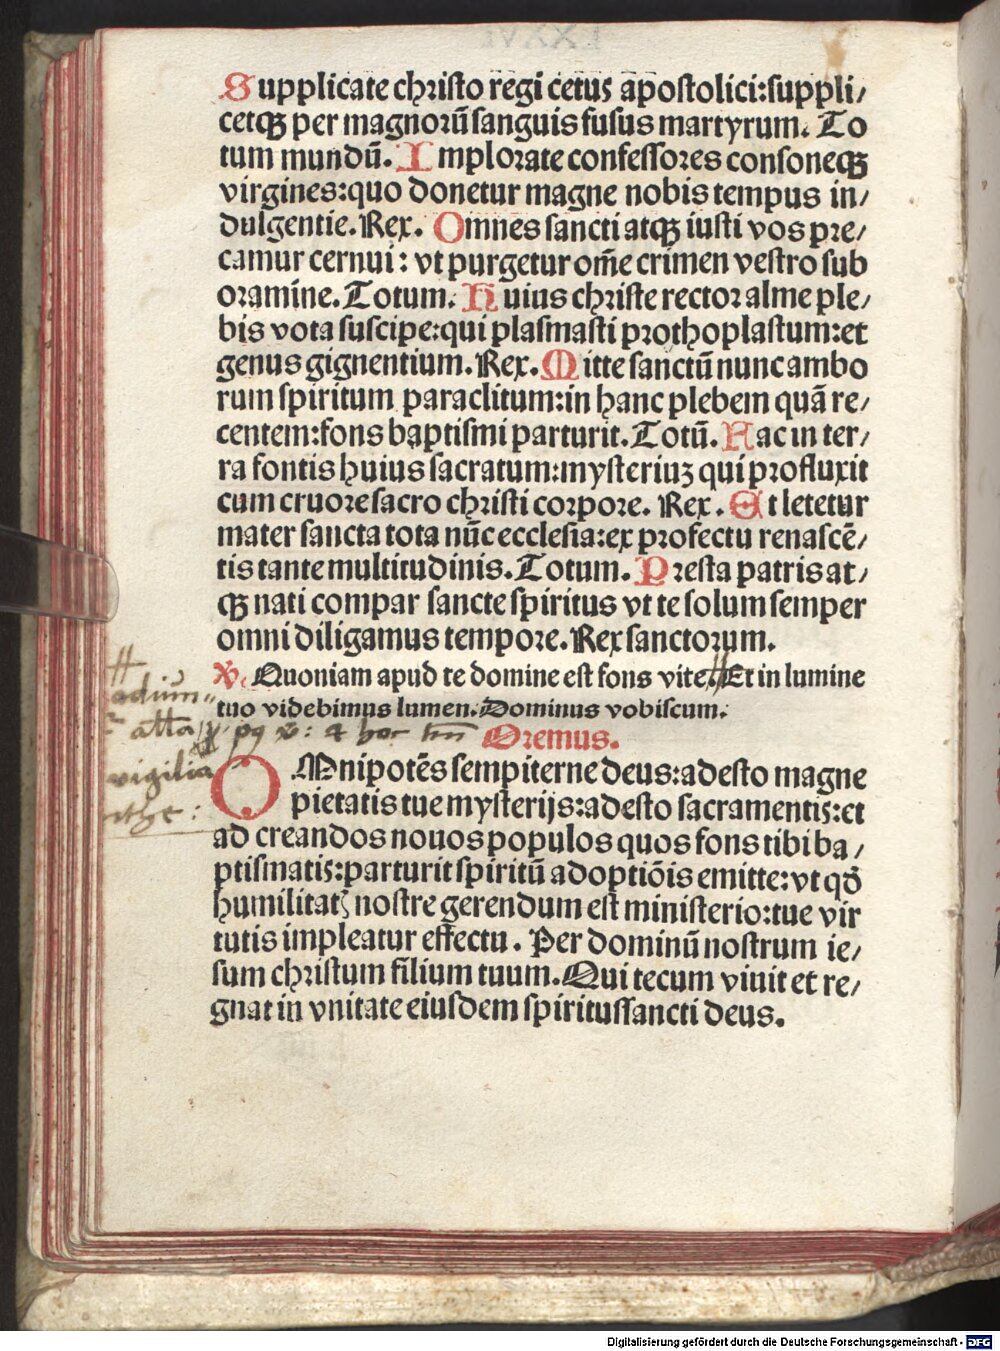 Supplicate christo regi cetus apostolici:suppli/
cetqꝫ per magnorū sanguis fusus martyrum. To
tum mundū. Implorate confessores consoneqꝫ
virgines:quo donetur magne nobis tempus in/
dulgentie. Rex. Omnes sancti atqꝫ iusti vos pre/
camur cernui: vt purgetur om̄e crimen vestro sub
oramine. Totum. Huius christe rector alme ple/
bis vota suscipe:qui plasmasti prothoplastum:et
genus gignentium. Rex. Mitte sanctū nunc ambo
rum spiritum paraclitum:in hanc plebem quā re/
centem:fons baptismi parturit. Totū. Hac in ter/
ra fontis huius sacratum:mysteriuꝫ qui profluxit
cum cruore sacro christi corpore. Rex. Et letetur
mater sancta tota nūc ecclesia:ex profectu renascē/
tis tante multitudinis. Totum. Presta patris at/
qꝫ nati compar sancte spiritus vt te solum semper
omni diligamus tempore. Rex sanctorum.
℣. Quoniam apud te domine est fons vite. Et in lumine
tuo videbimus lumen. Dominus vobiscum.
Oremus.
OMnipotēs sempiterne deus:adesto magne
pietatis tue mysterijs:adesto sacramentis:et
ad creandos nouos populos quos fons tibi ba/
ptismatis:parturit spiritū adoptiōis emitte:vt qd̄
humilitatꝭ nostre gerendum est ministerio:tue vir
tutis impleatur effectu. Per dominū nostrum ie/
sum christum filium tuum. Qui tecum viuit et re/
gnat in vnitate eiusdem spiritussancti deus.
vigilia
Digitalisierung gefördert durch die Deutsche Forschungsgemeinschaft - DFG